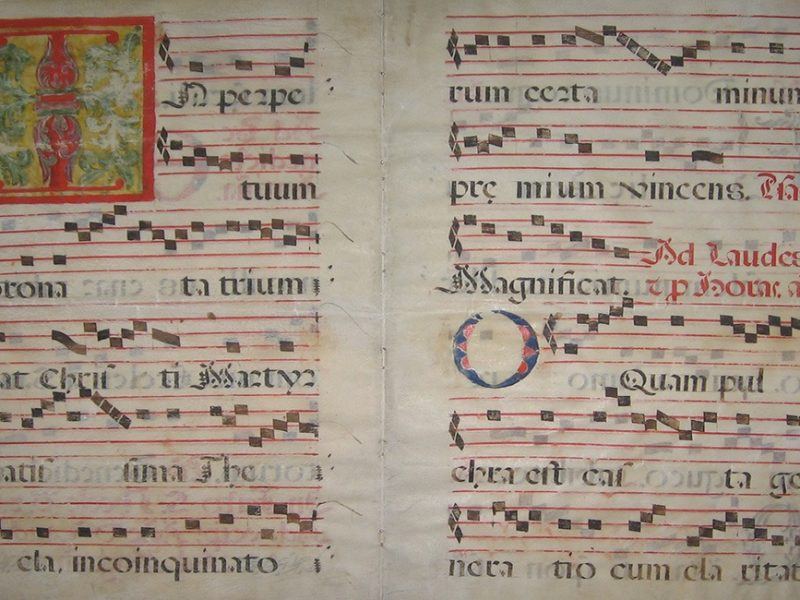 IN perpe
tuum
orona ta trium
at. Chris ti Martyr
atis sima The
cla, incoinquinato
rum certa minum
prę mium vincens.
Ad Laudes
Magnificat. Horas. a
O Quam pul
chra est cas ta ge
nera tio cum cla ritat